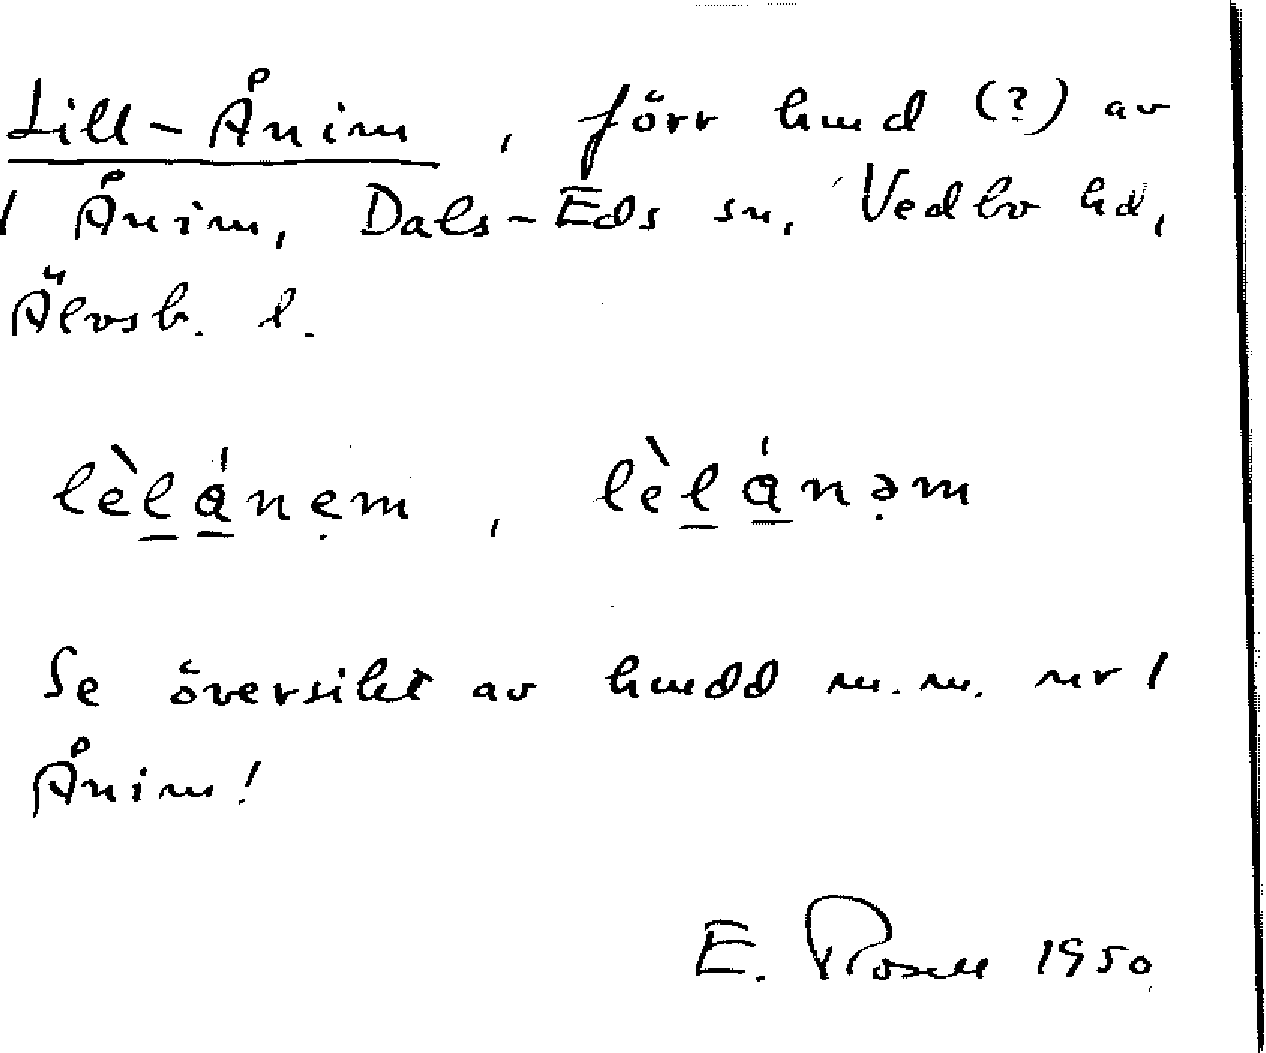 Lill-Ånim, förr hmd (?) av
1 Ånim, Dals-Eds sn, Vedbo hd,
Älvsb. l.
lèlánẹm, lèlánə̣m
Se översikt av hmdd m.m. nr 1
Ånim!
E. Rosell 1950